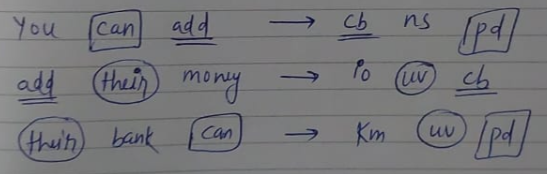 You can add → cb ns pd
add their money → Po uv cb
their bank can → Km uv pd